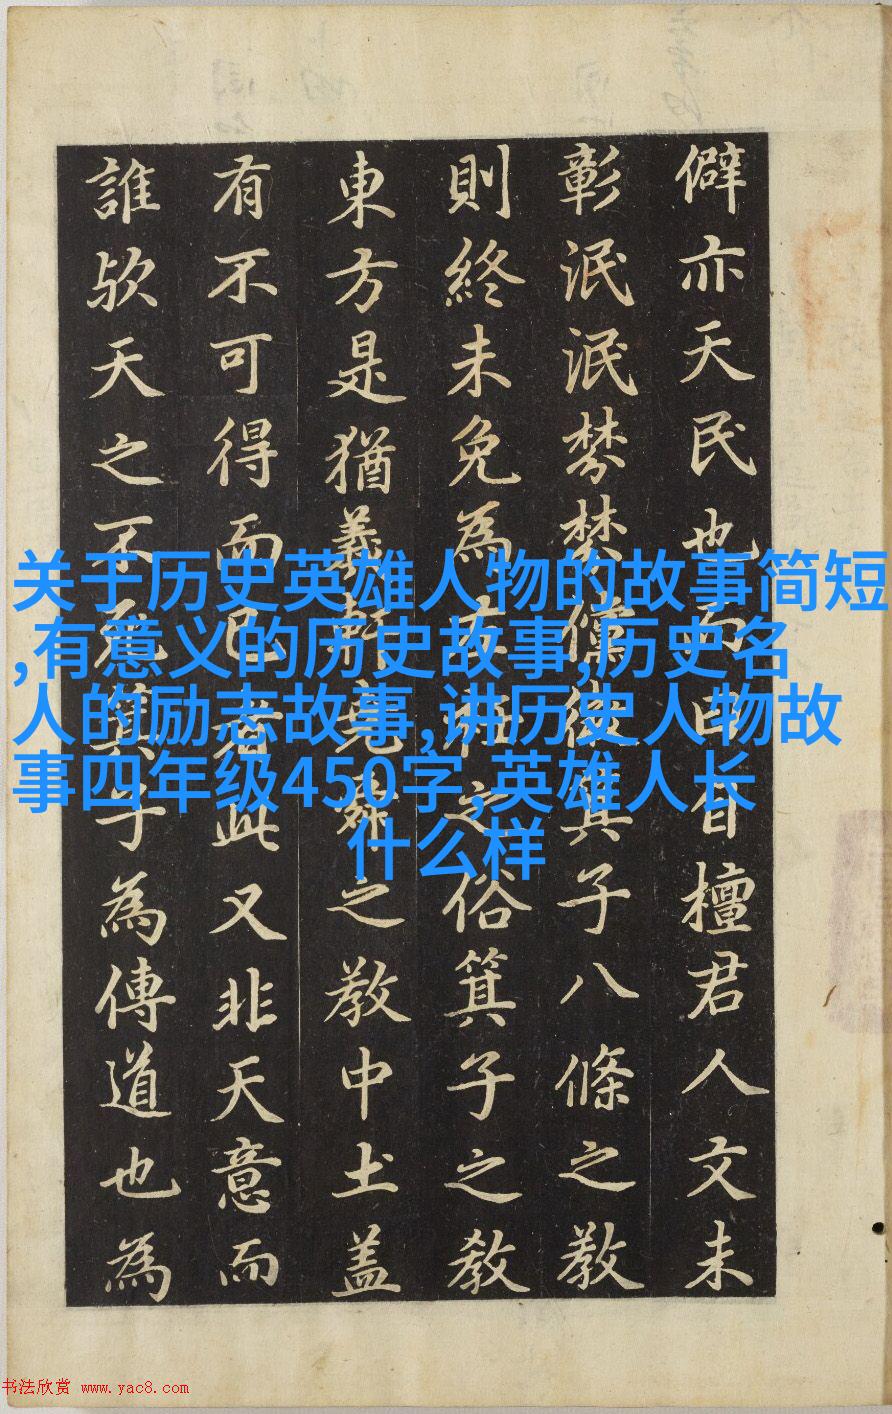 僻亦天民也而昔檀君人文未
彰泯泯棼棼儻微箕子八條之教
則終未免為左衽之俗箕子之教
東方是猶羲軒堯舜之教中土盖
有不可得而已者此又非天意而
誰欤天之不死箕子為傳道也為
关于历史英雄人物的故事简短
,有意义的历史故事,历史名
人的励志故事,讲历史人物故
事四年级450字,英雄人长
什么样
书法欣赏 www.yac8.com